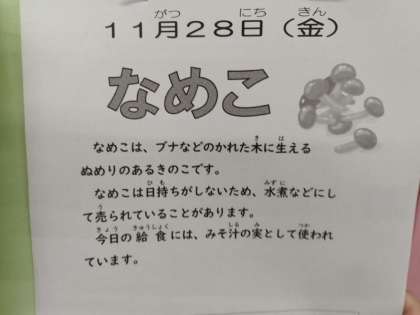 11月28日（金）
なめこ
なめこは、ブナなどのかれた木に生える
ぬめりのあるきのこです。
なめこは日持ちがしないため、水煮などにし
て売られていることがあります。
今日の給食には、みそ汁の実として使われ
ています。